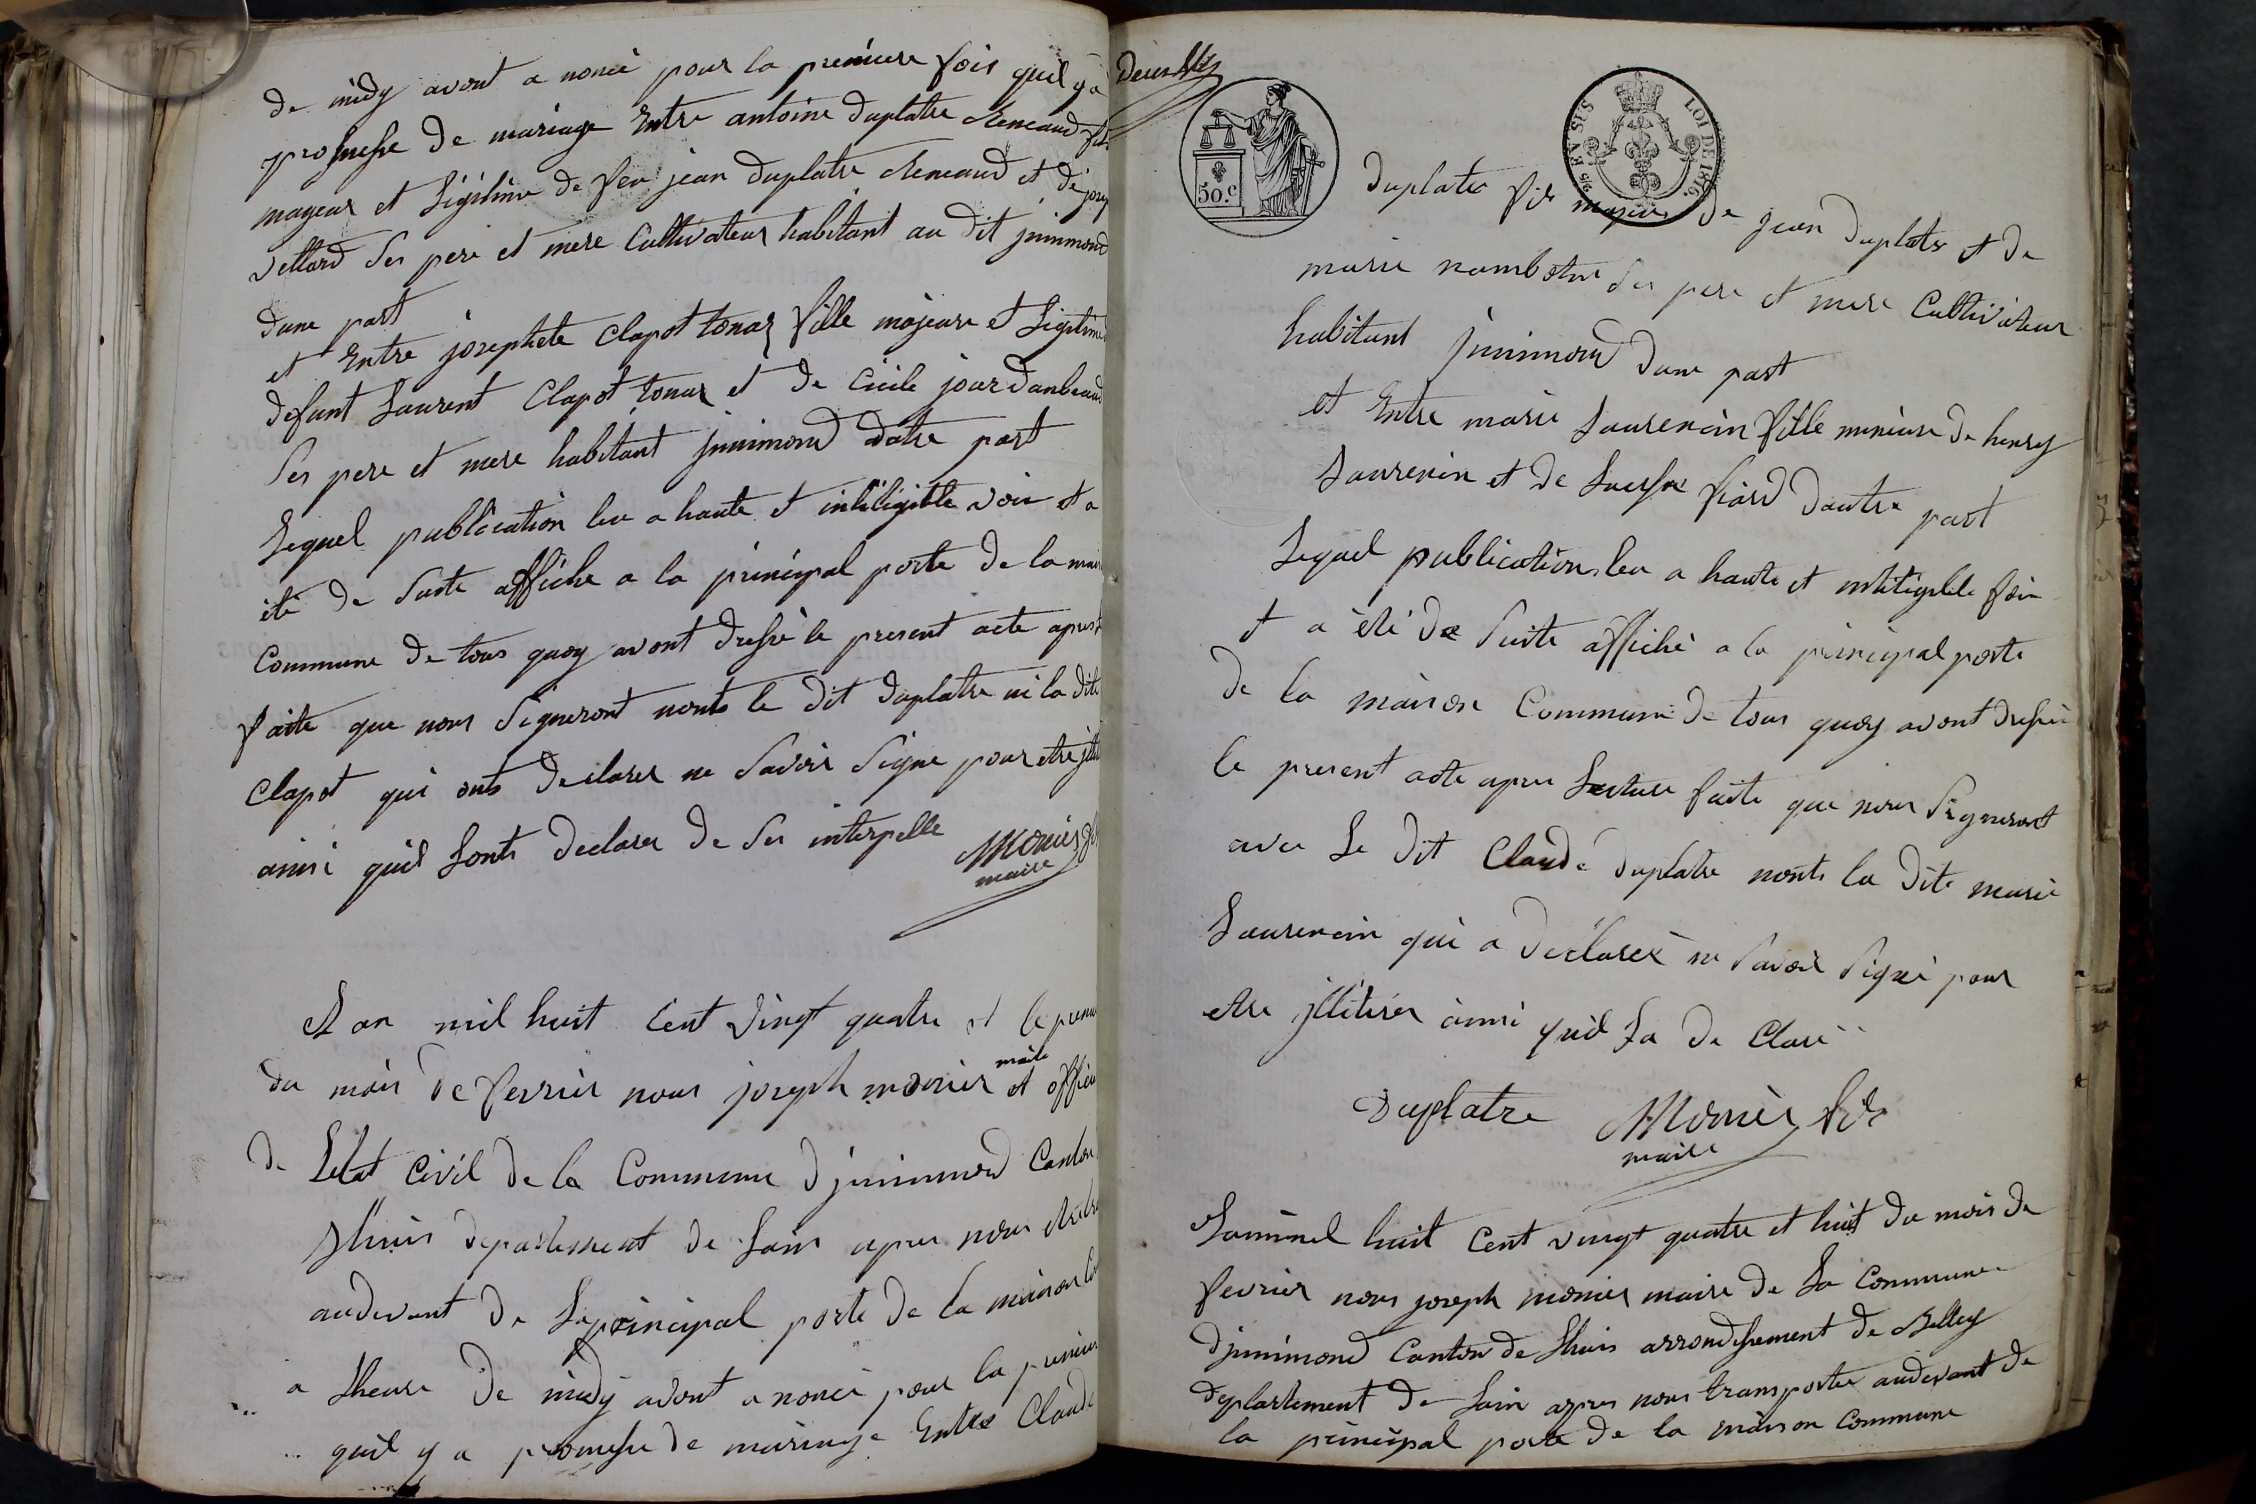 de midy avont a noncé pour la premiere fois quil y a
promesse de mariage Entre antoine duplatre Reneaud fils
mageur et Ligitime de feu jean duplatre Reneaud et de
vettard Ses pere et mere Cultivateur habitant au dit jnnimond
dune part
et Entre josephete Clapot tonaz fille majeure et Ligitime
defunt Laurent Clapot tonaz et de Cicile jourdanbeaud
Ses pere et mere habitant jnnimond datre part
Lequel publication leu a haute et intiligible voix et a
été de Suite affiche a la principal porte de la
Commune de tous quoy avont dressé le present acte apres
faite que nous Signeront nonts le dit duplatre ni la dite
Clapot qui onts declarer ne Savoir Signe pour etre
ainsi quil Lonts declarer de Ses interpelle
Monier
maire
Lan mil huit Cent vingt quatre et le
du mois de fevrier nous joseph monier maire et officier
de Letat Civil de la Commune djnnimond Canton
Lhuis departement de Lain apres nous
audevant de La principal porte de la maison
a Lheure de midy avont a noncé pour la premiere
quil y a promesse de mariage Entre Claude
50. c
LOI DE 1816.
duplatre fils majeur de jean duplatre et de
marie nambotin Ses pere et mere Cultivateur
habitant jnnimond dune part
et Entre marie Laurencin fille mineure de henry
Laurencin et de fiard dautre part
Lequel publication leu a haute et intiligible foix
et a été de Suite affiché a la principal porte
de la maison Commune de tous quoy avont dressé
le present acte apres Lecture faite que nous Signeront
avec Le dit Claude duplatre nonts la dite marie
Laurencin qui a declarer ne Savoir Signé pour
etre jlliterer ainsi quil La de Claré
Duplatre Monier fils
maire
Lanmil huit Cent vingt quatre et huit du mois de
fevrier nous joseph monier maire de La Commune
djnnimond Canton de Lhuis arrondissement de Belley
departement de Lain apres nous transporter audevant de
la principal porte de la maison Commune